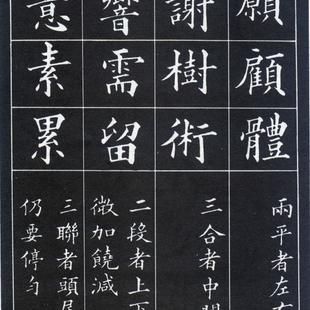 願顧體
兩平者左右
謝樹術
三合者中間
響需留
二段者上下
微加饒減
意素累
三聯者頭尾
仍要停勻